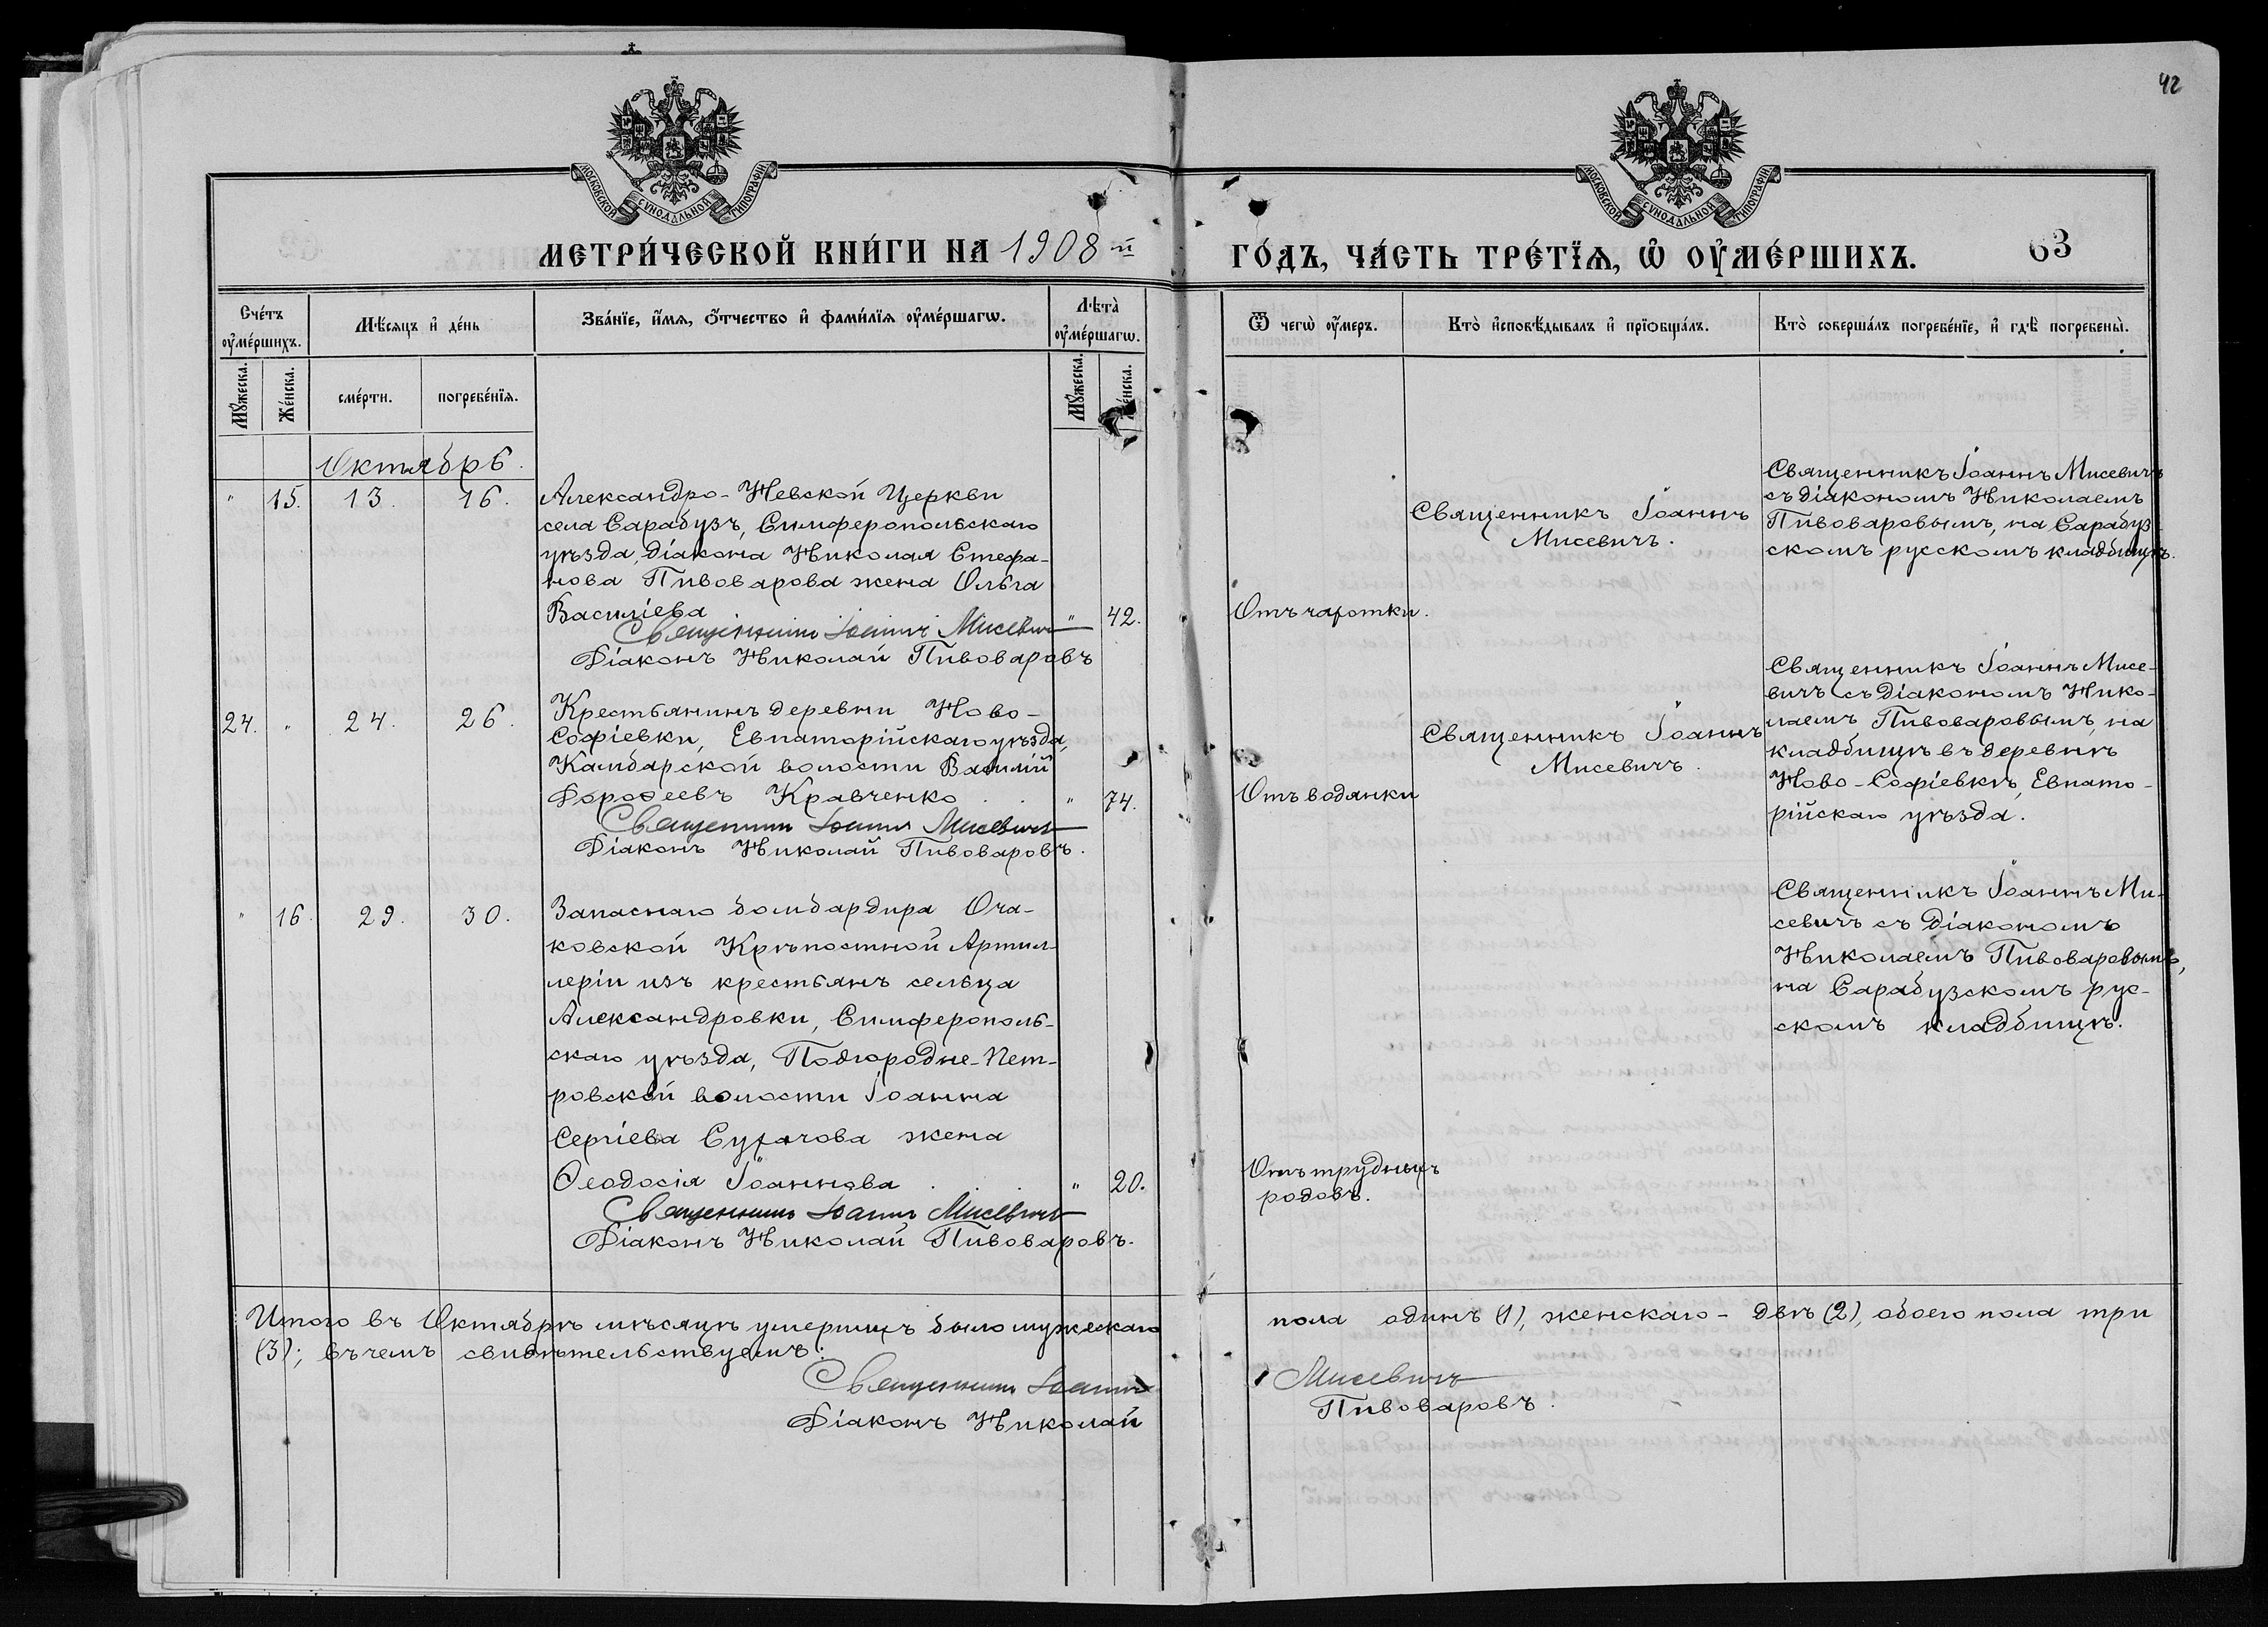 42
МОСКОВСКОЙ СѴНОДАЛЬНОЙ ТИПОГРАФІИ
МОСКОВСКОЙ СѴНОДАЛЬНОЙ ТИПОГРАФІИ
МЕТРИ́ЧЕСКОЙ КНИ́ГИ НА 1908 й
ГО́ДЪ, ЧА́СТЬ ТРЕ́ТЇѦ, Ѡ҆ ОУ҆МЕ́РШИХЪ. 63
Сче́тъ оу҆ме́ршихъ.
Мѣ́сяцъ и҆ де́нь
Зва́нїе, и҆́мѧ, ѻ҆́тчество и҆ фами́лїѧ оу҆ме́ршагѡ.
Лѣ̀та̀ оу҆ме́ршагѡ.
Ѿ чегѡ̀ оу҆́меръ.
Кто̀ и҆сповѣ́дывалъ и҆ прїѡбща́лъ.
Кто̀ соверша́лъ погребе́нїе, и҆ гдѣ̀ погребены̀.
Мꙋ́жеска.
Же́нска.
сме́рти.
погребе́нїѧ.
Мꙋ́жеска.
Же́нска.
Октябрь.
" 15. 13. 16.
Александро-Невской Церкви
села Сарабузъ, Симферопольскаго
уѣзда, діакона Николая Стефа-
нова Пивоварова жена Ольга
Василіева " 42.
Священникъ Іоаннъ Мисевичъ
Діаконъ Николай Пивоваровъ
Отъ чахотки.
Священникъ Іоаннъ
Мисевичъ.
Священникъ Іоаннъ Мисевичъ
съ діакономъ Николаемъ
Пивоваровымъ, на Сарабуз-
скомъ русскомъ кладбищѣ.
24. " 24. 26.
Крестьянинъ деревни Ново-
Софіевки, Евпаторійскаго уѣзда,
Камбарской волости Василій
Дороѳеевъ Кравченко . . " 74.
Священникъ Іоаннъ Мисевичъ
Діаконъ Николай Пивоваровъ.
Отъ водянки
Священникъ Іоаннъ
Мисевичъ.
Священникъ Іоаннъ Мисе-
вичъ съ Діакономъ Нико-
лаемъ Пивоваровымъ, на
кладбищѣ въ деревнѣ
Ново-Софіевкѣ, Евпато-
рійскаго уѣзда.
" 16. 29. 30.
Запаснаго бомбардира Оча-
ковской Крѣпостной Артил-
леріи изъ крестьянъ сельца
Александровки, Симферополь-
скаго уѣзда, Подгородне-Пет-
ровской волости Іоанна
Сергіева Сугачова жена
Ѳеодосія Іоаннова . . " 20.
Священникъ Іоаннъ Мисевичъ
Діаконъ Николай Пивоваровъ.
Отъ трудныхъ
родовъ.
Священникъ Іоаннъ Ми-
севичъ съ Діакономъ
Николаемъ Пивоваровымъ,
на Сарабузскомъ рус-
скомъ кладбищѣ.
Итого въ Октябрѣ мѣсяцѣ умершихъ было мужескаго
пола одинъ (1), женскаго - двѣ (2), обоего пола три
(3); въ чемъ свидѣтельствуемъ:
Священникъ Іоаннъ Мисевичъ
Діаконъ Николай Пивоваровъ.